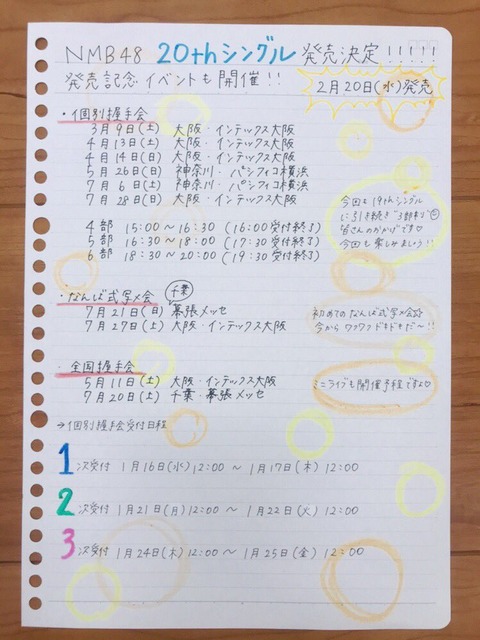 NMB48 20thシングル 発売決定!!!!!
発売記念イベントも開催!!
2月20日(水)発売
・個別握手会
3月9日(土) 大阪・インテックス大阪
4月13日(土) 大阪・インテックス大阪
4月14日(日) 大阪・インテックス大阪
5月26日(日) 神奈川・パシフィコ横浜
7月6日(土) 神奈川・パシフィコ横浜
7月28日(日) 大阪・インテックス大阪
4部 15:00～16:30 (16:00受付終了)
5部 16:30～18:00 (17:30受付終了)
6部 18:30～20:00 (19:30受付終了)
今回も19thシングル
に引き続き"3部制"
皆さんのおかげです♡
今回も楽しみましょう!!
・なんば式写メ会
7月21日(日) 千葉・幕張メッセ
7月27日(土) 大阪・インテックス大阪
初めてのなんば式写メ会☆
今からワクワクドキドキだ〜!!
・全国握手会
5月11日(土) 大阪・インテックス大阪
7月20日(土) 千葉・幕張メッセ
ミニライブも開催予定ですよ♡
→個別握手会受付日程
1次受付 1月16日(水)12:00 ～ 1月17日(木) 12:00
2次受付 1月21日(月)12:00 ～ 1月22日(火) 12:00
3次受付 1月24日(木)12:00～ 1月25日(金) 12:00